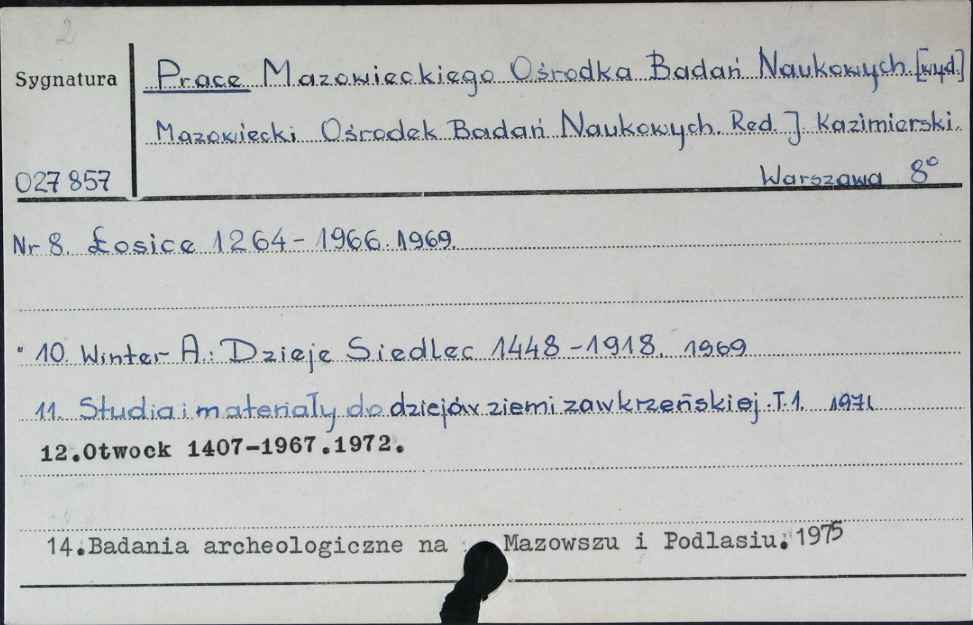 2
Sygnatura
Prace Mazowieckiego Ośrodka Badań Naukowych. [wyd.]
Mazowiecki Ośrodek Badań Naukowych. Red. J. Kazimierski.
027857
Warszawa 8°
Nr 8. Łosice 1264-1966. 1969.
10. Winter A.: Dzieje Siedlec 1448-1918. 1969
11. Studia i materiały do dziejów ziemi zawkrzeńskiej. T.1. 1971
12.Otwock 1407-1967.1972.
14.Badania archeologiczne na Mazowszu i Podlasiu.1975